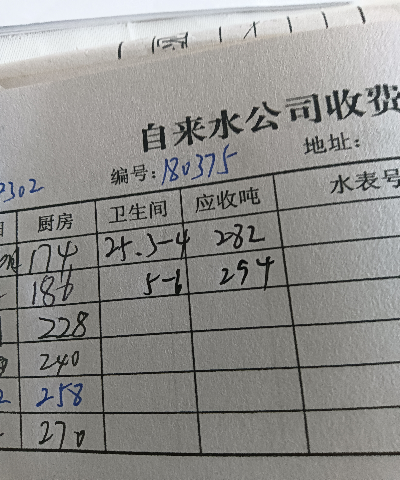 自来水公司收费
302 编号: 180375 地址:
厨房 卫生间 应收吨 水表号
174 25.3-4 282
186 5-6 294
228
240
258
270